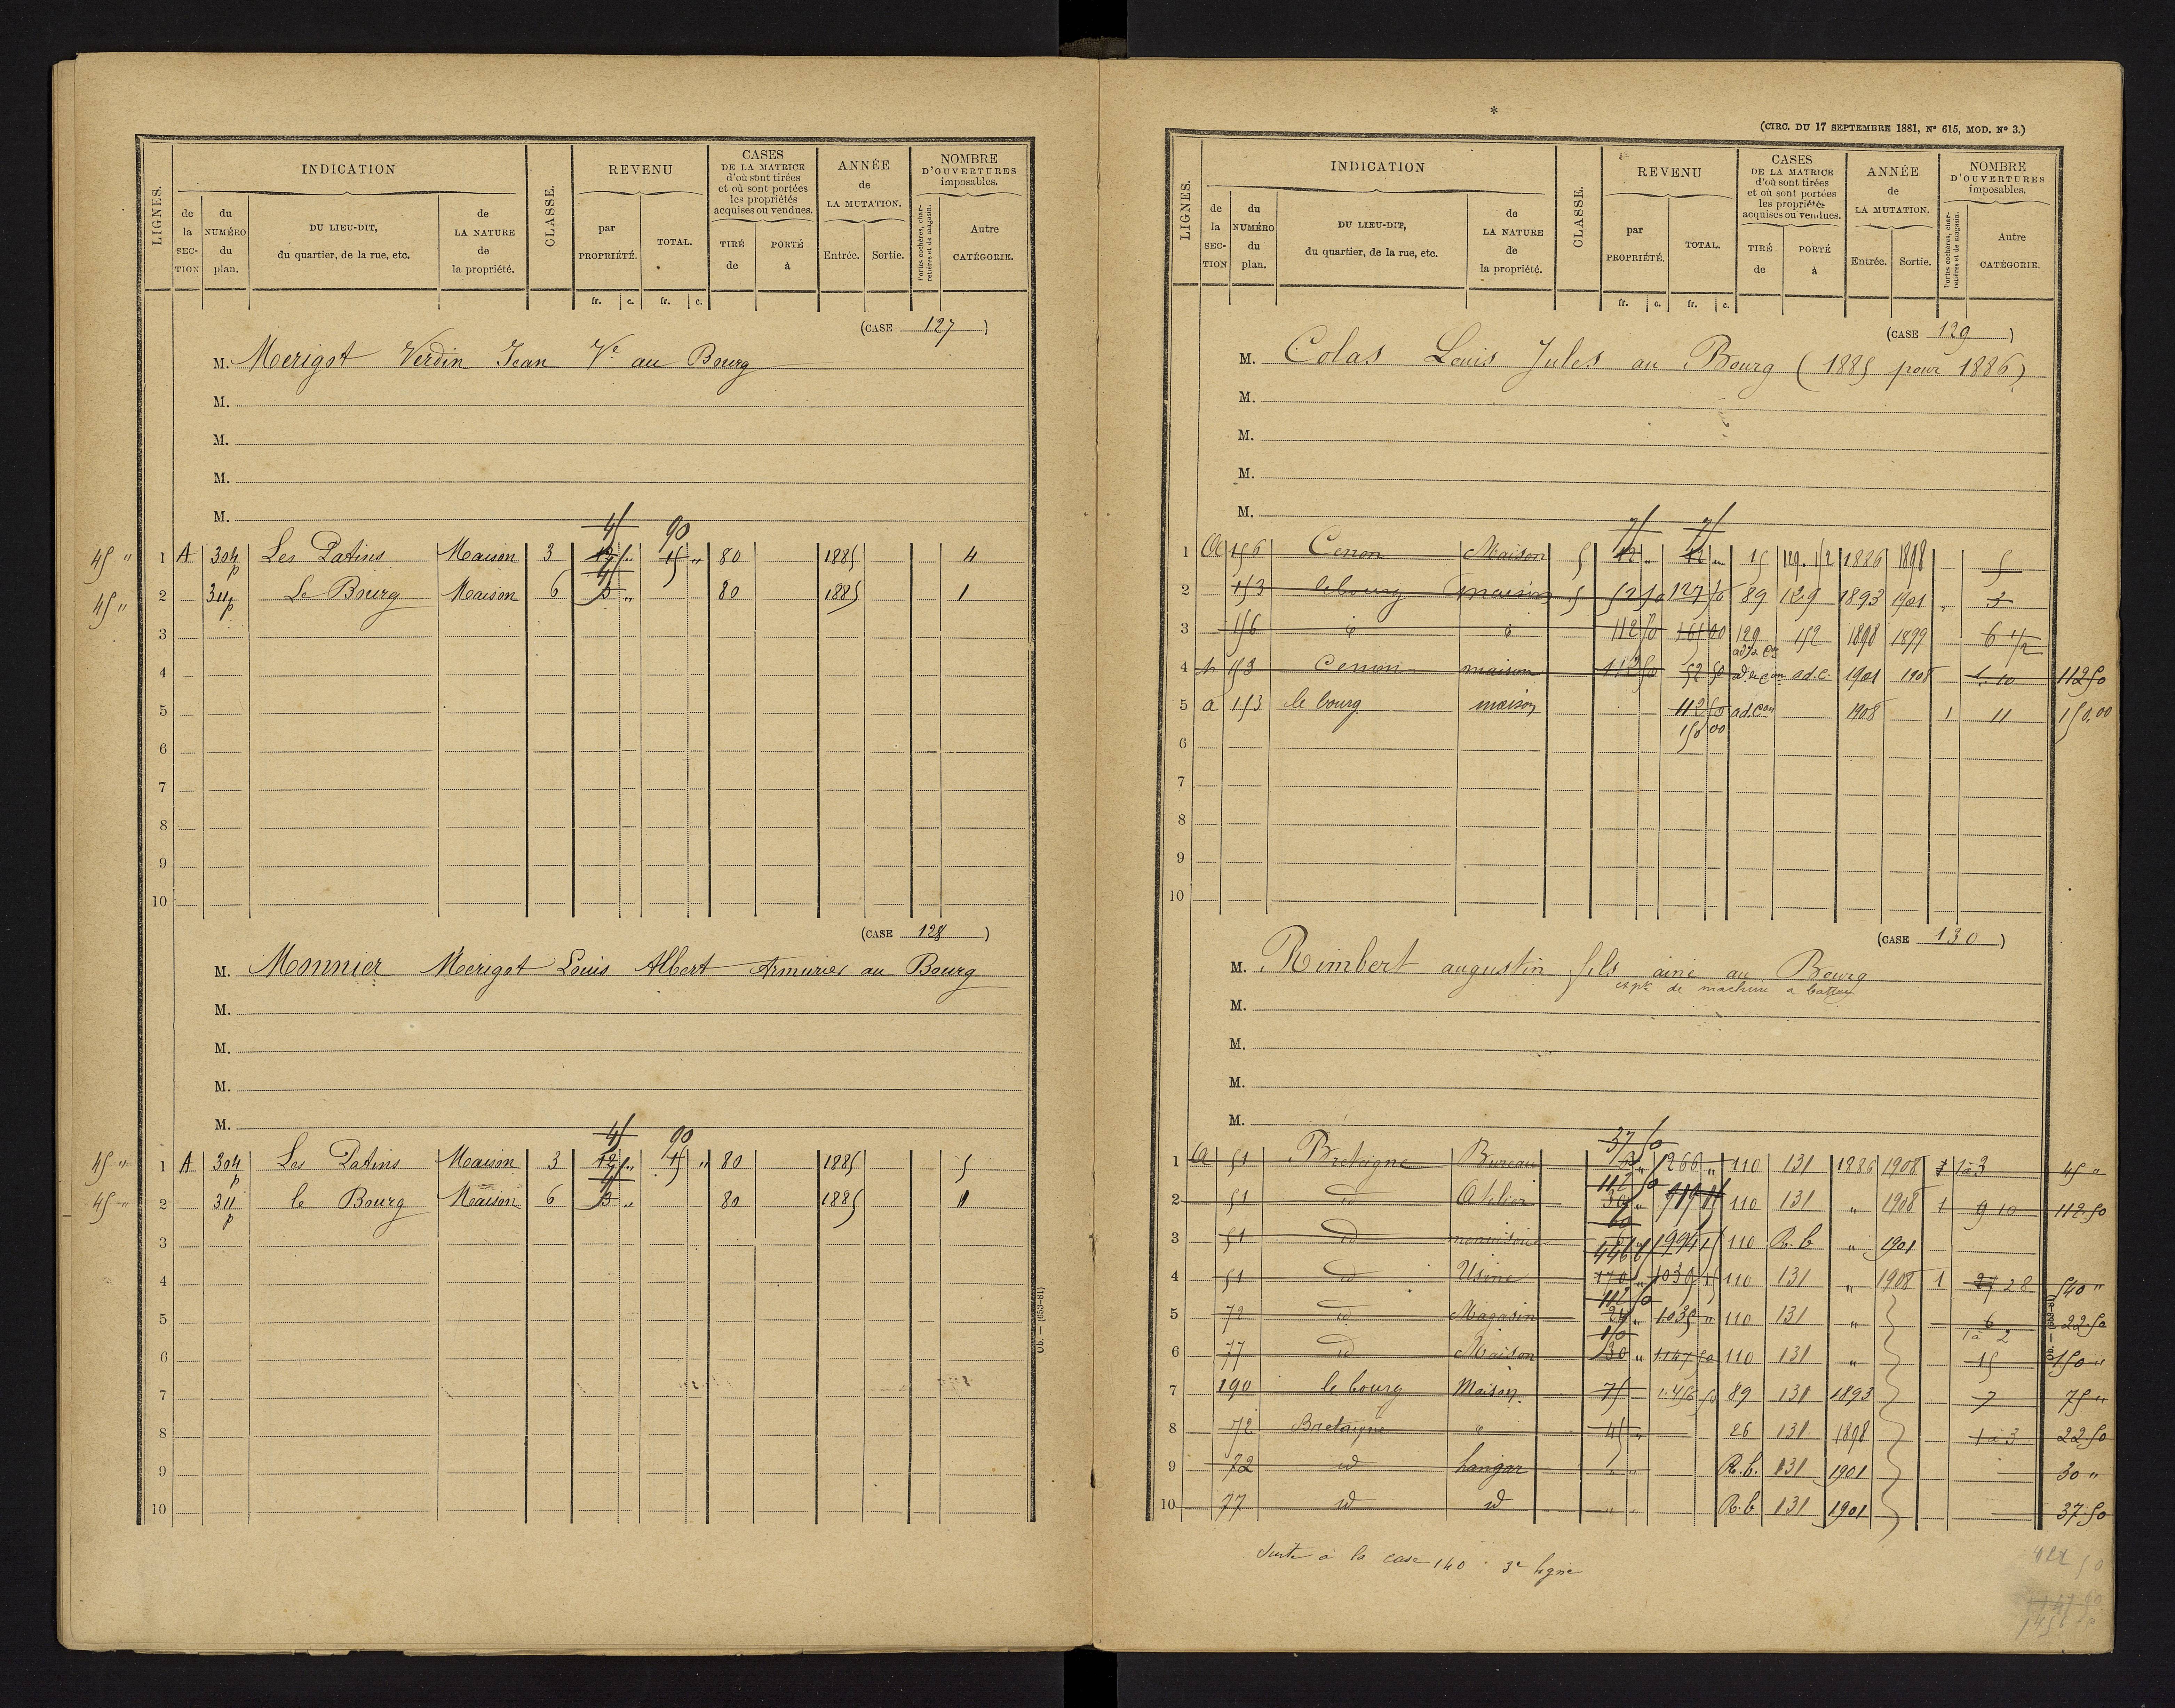 INDICATION
REVENU
CASES DE LA MATRICE d'où sont tirées et où sont portées les propriétés acquises ou vendues.
ANNÉE de LA MUTATION.
NOMBRE D'OUVERTURES imposables.
LIGNES. de la SECTION du NUMÉRO du plan. DU LIEU-DIT, du quartier, de la rue, etc. de LA NATURE de la propriété. CLASSE. par PROPRIÉTÉ. TOTAL. TIRÉ de PORTÉ à Entrée. Sortie. Portes cochères, charretières et de magasin. Autre CATÉGORIE.
fr. c. fr. c.
(CASE 127)
M. Merigot Verdin Jean Ve au Bourg
M.
M.
M.
M.
45 90
45 " 1 A 304 p Les Patins Maison 3 12 " 15 " 80 1885 4
45
45 " 2 311 p Le Bourg Maison 6 3 " 80 1885 1
3
4
5
6
7
8
9
10
(CASE 128)
M. Monnier Merigot Louis Albert Armurier au Bourg
M.
M.
M.
M.
45 90
45 " 1 A 304 p Les Patins Maison 3 12 " 15 " 80 1885 5
45
45 " 2 311 p le Bourg Maison 6 3 " 80 1885 1
3
4
5
6
7
8
9
10
Ob. — (653-81)
*
(CIRC. DU 17 SEPTEMBRE 1881, N° 615, MOD. N° 3.)
INDICATION
REVENU
CASES DE LA MATRICE d'où sont tirées et où sont portées les propriétés acquises ou vendues.
ANNÉE de LA MUTATION.
NOMBRE D'OUVERTURES imposables.
LIGNES. de la SECTION du NUMÉRO du plan. DU LIEU-DIT, du quartier, de la rue, etc. de LA NATURE de la propriété. CLASSE. par PROPRIÉTÉ. TOTAL. TIRÉ de PORTÉ à Entrée. Sortie. Portes cochères, charretières et de magasin. Autre CATÉGORIE.
fr. c. fr. c.
(CASE 129)
M. Colas Louis Jules au Bourg (1885 pour 1886)
M.
M.
M.
M.
75 75
1 A 156 Cenon Maison 5 42 " 42 " 15 129. 152 1886 1898 5
2 153 le bourg maison 5 52 50 127 50 89 129 1893 1901 " 3
3 156 d° d° 112 50 165 00 129 152 1898 1899 6 1/2
4 153 Cenon maison 112 50 52 50 ad. de con ad.c. 1901 1908 1. 10 112 50
5 a 153 le bourg maison 112 50 ad. con 1908 1 11 150,00
150 00
6
7
8
9
10
(CASE 130)
M. Rimbert augustin fils ainé au Bourg
de machine a battre
M.
M.
M.
M.
37 50
1 A 51 Bretaigne Bureau 1266 " 110 131 1886 1908 1 à 3 45 "
112 50
2 51 id Atelier 30 " 110 131 " 1908 1 9 10 112.50
60
3 51 id 110 R. b " 1901
4 51 id Usine 170 " 110 131 " 1908 1 27 28 540 "
112 50
5 72 id Magasin 24 " 1035 " 110 131 " 6 22.50
150 1 à 2
6 77 id Maison 130 " 1147 50 110 131 " 15 150 "
7 190 le bourg Maison 75 1.456 50 89 131 1893 7 75 "
8 72 Bretaigne d° 45 " 26 131 1898 1 à 3 22.50
9 72 id hangar " " R. b. 131 1901 30 "
10 77 id id " " R. b 131 1901 37.50
Suite à la case 140 - 3e ligne